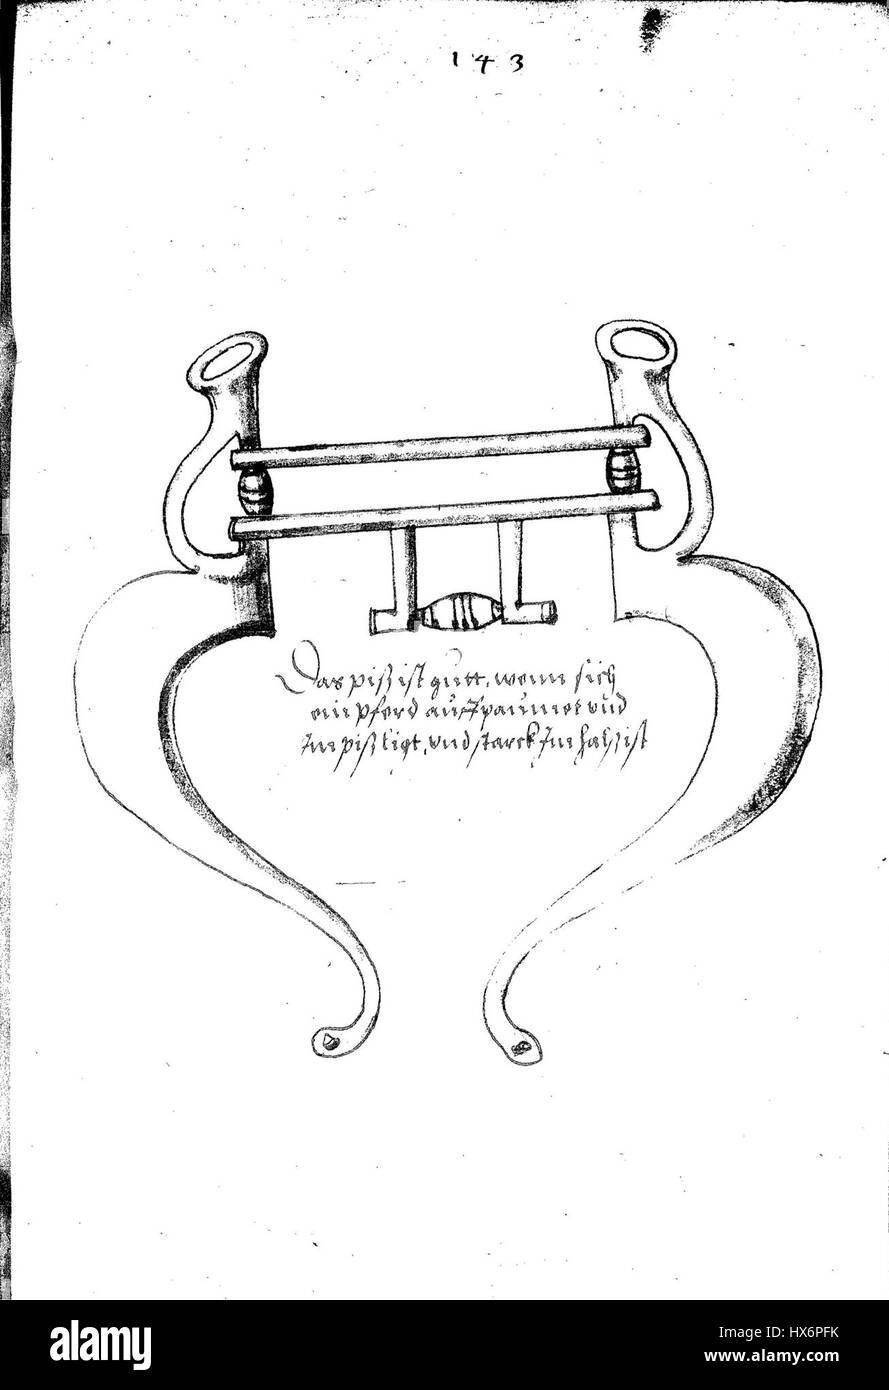 143
Das piß ist gutt, wenn sich
ein pferd auffpaumet vnd
Im piß ligt, vnd starck Im halß ist
alamy
alamy stock photo
HX6PFK
www.alamy.com